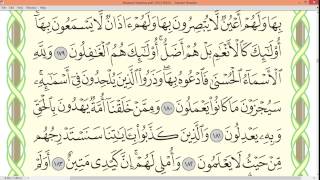 بِهَا وَلَهُمْ أَعْيُنٌ لَّا يُبْصِرُونَ بِهَا وَلَهُمْ ءَاذَانٌ لَّا يَسْمَعُونَ بِهَآ
أُوْلَٰٓئِكَ كَٱلْأَنْعَٰمِ بَلْ هُمْ أَضَلُّ أُوْلَٰٓئِكَ هُمُ ٱلْغَٰفِلُونَ ١٧٩ وَلِلَّهِ
ٱلْأَسْمَآءُ ٱلْحُسْنَىٰ فَٱدْعُوهُ بِهَا وَذَرُوا۟ ٱلَّذِينَ يُلْحِدُونَ فِىٓ أَسْمَٰٓئِهِۦ
سَيُجْزَوْنَ مَا كَانُوا۟ يَعْمَلُونَ ١٨٠ وَمِمَّنْ خَلَقْنَآ أُمَّةٌ يَهْدُونَ بِٱلْحَقِّ
وَبِهِۦ يَعْدِلُونَ ١٨١ وَٱلَّذِينَ كَذَّبُوا۟ بِـَٔايَٰتِنَا سَنَسْتَدْرِجُهُم
مِّنْ حَيْثُ لَا يَعْلَمُونَ ١٨٢ وَأُمْلِى لَهُمْ إِنَّ كَيْدِى مَتِينٌ ١٨٣ أَوَلَمْ